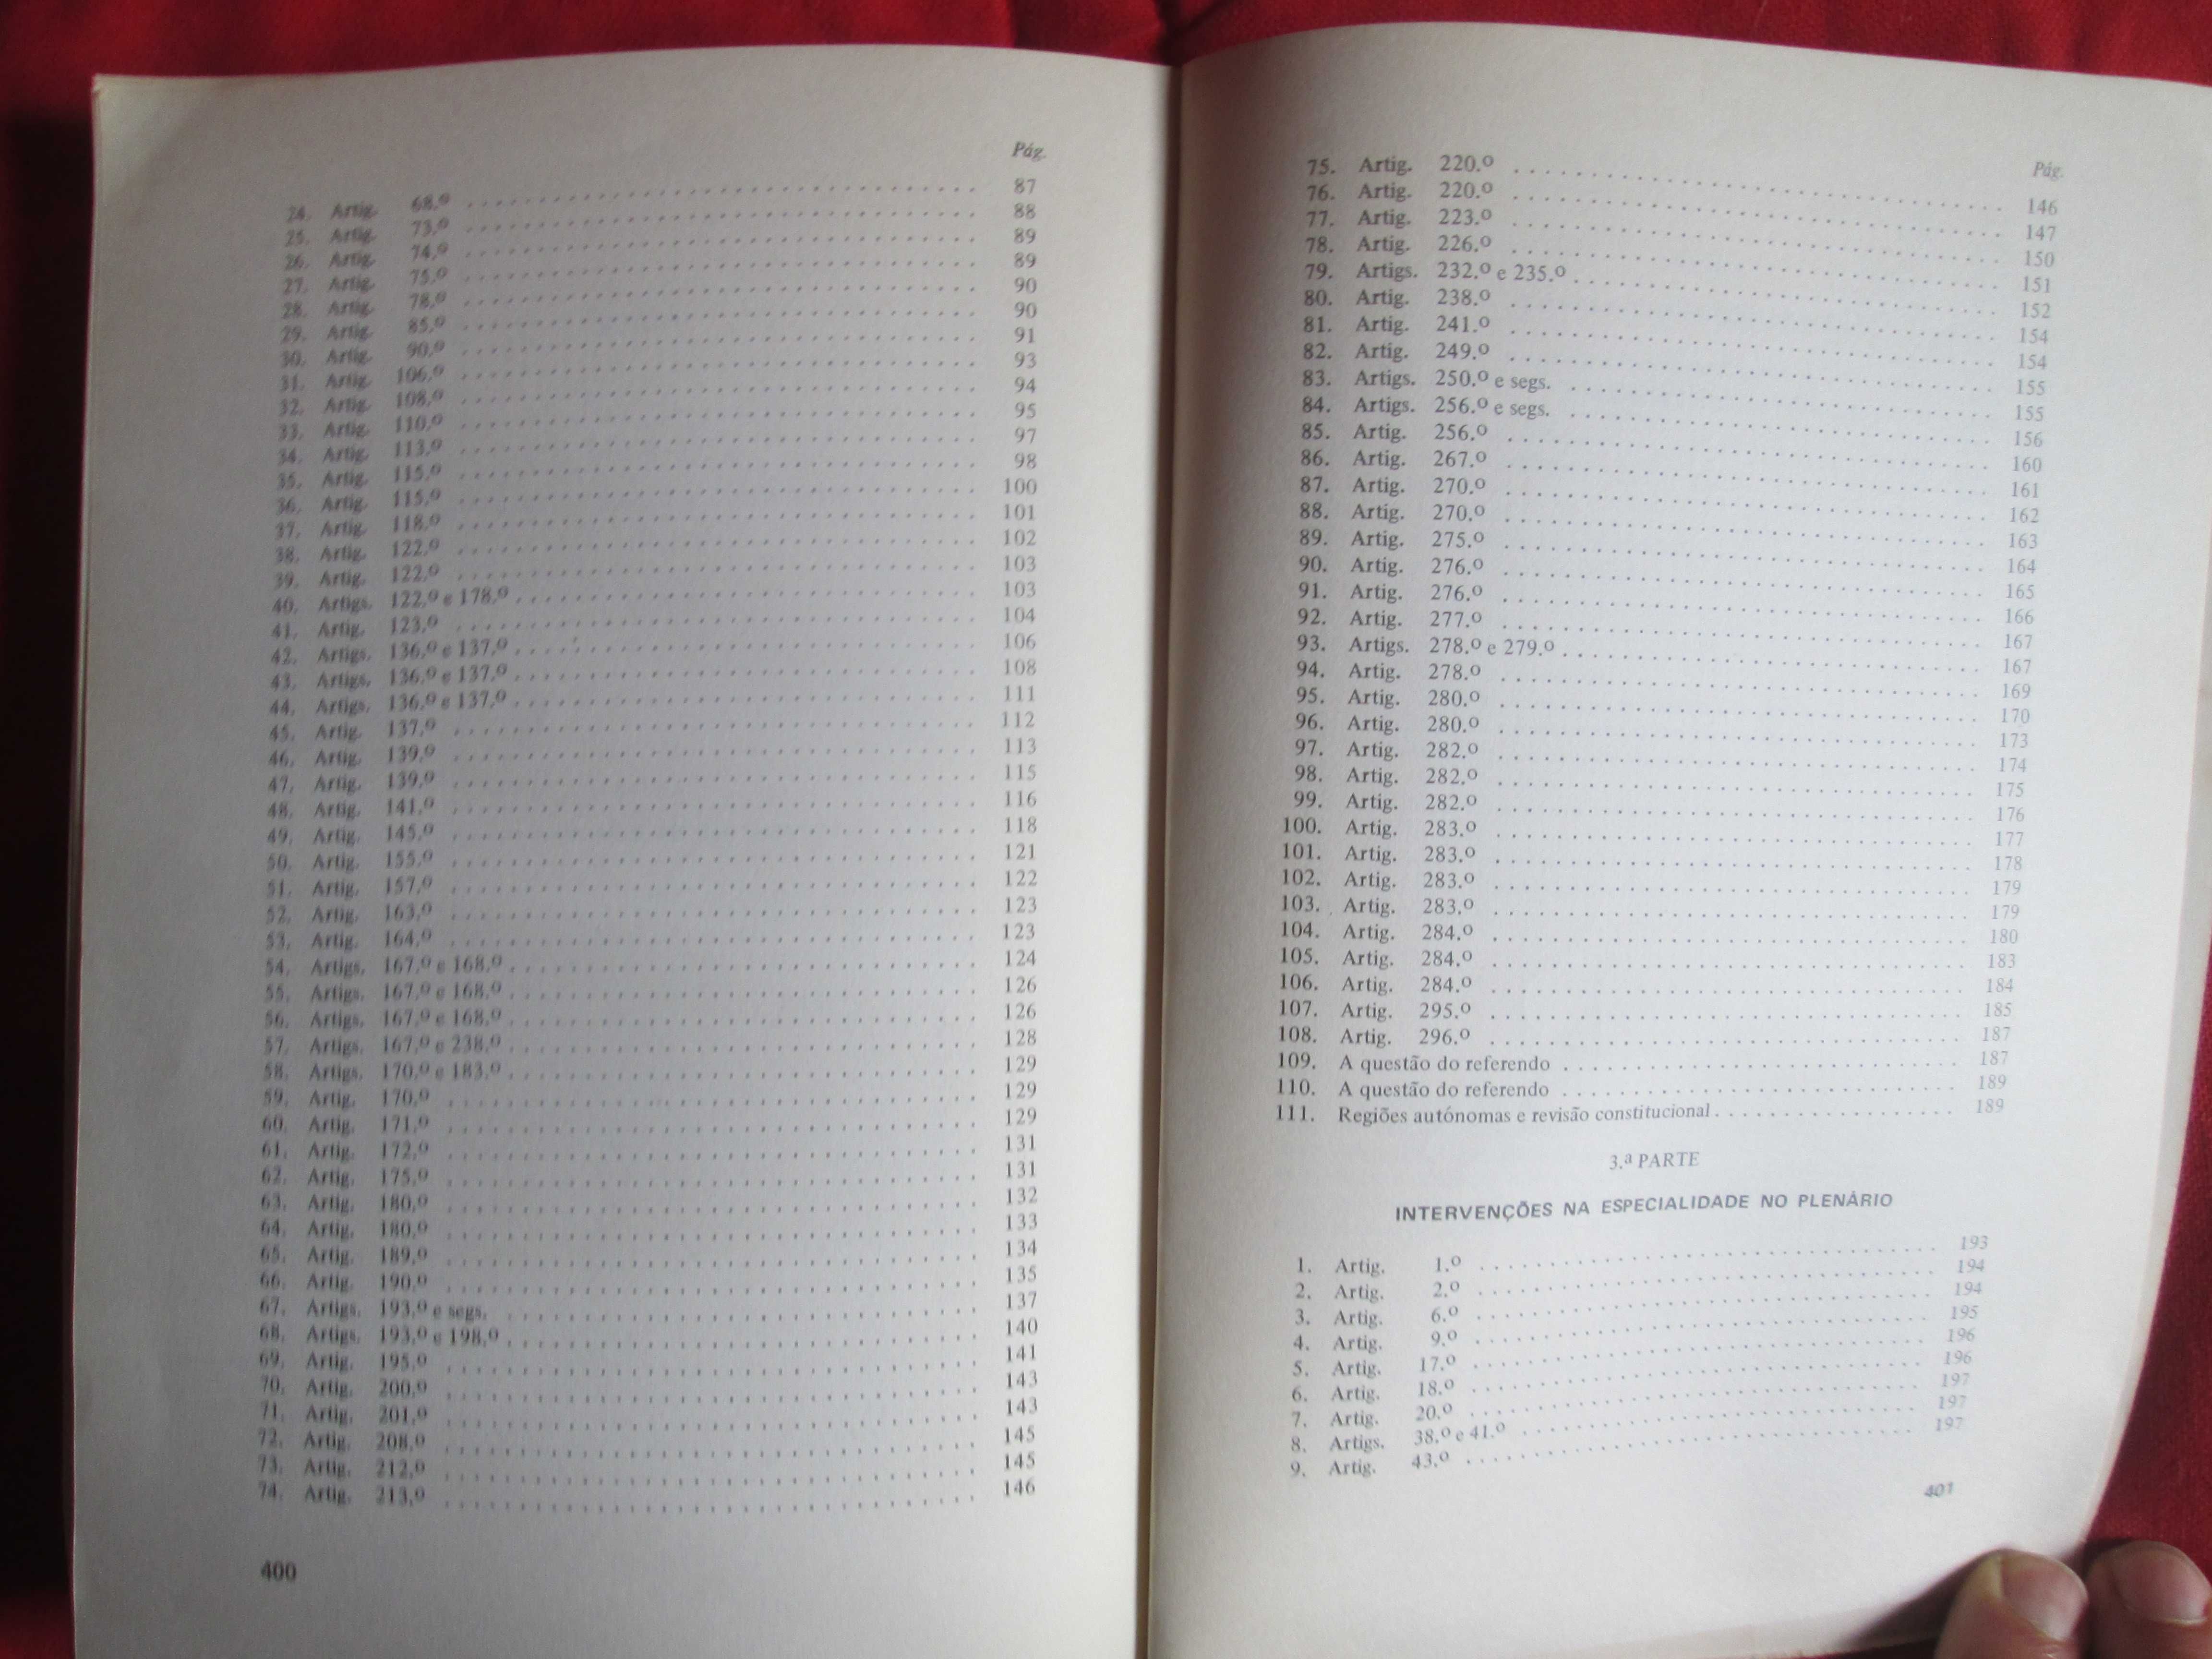 Pág.
24. Artig. 68.º ........ 87
25. Artig. 73.º ........ 88
26. Artig. 74.º ........ 89
27. Artig. 75.º ........ 89
28. Artig. 78.º ........ 90
29. Artig. 85.º ........ 90
30. Artig. 90.º ........ 91
31. Artig. 106.º ........ 93
32. Artig. 108.º ........ 94
33. Artig. 110.º ........ 95
34. Artig. 113.º ........ 97
35. Artig. 115.º ........ 98
36. Artig. 115.º ........ 100
37. Artig. 118.º ........ 101
38. Artig. 122.º ........ 102
39. Artig. 122.º ........ 103
40. Artigs. 122.º e 178.º ........ 103
41. Artig. 123.º ........ 104
42. Artigs. 136.º e 137.º ........ 106
43. Artigs. 136.º e 137.º ........ 108
44. Artigs. 136.º e 137.º ........ 111
45. Artig. 137.º ........ 112
46. Artig. 139.º ........ 113
47. Artig. 139.º ........ 115
48. Artig. 141.º ........ 116
49. Artig. 145.º ........ 118
50. Artig. 155.º ........ 121
51. Artig. 157.º ........ 122
52. Artig. 163.º ........ 123
53. Artig. 164.º ........ 123
54. Artigs. 167.º e 168.º ........ 124
55. Artigs. 167.º e 168.º ........ 126
56. Artigs. 167.º e 168.º ........ 126
57. Artigs. 167.º e 238.º ........ 128
58. Artigs. 170.º e 183.º ........ 129
59. Artig. 170.º ........ 129
60. Artig. 171.º ........ 129
61. Artig. 172.º ........ 131
62. Artig. 175.º ........ 131
63. Artig. 180.º ........ 132
64. Artig. 180.º ........ 133
65. Artig. 189.º ........ 134
66. Artig. 190.º ........ 135
67. Artigs. 193.º e segs. ........ 137
68. Artigs. 193.º e 198.º ........ 140
69. Artig. 195.º ........ 141
70. Artig. 200.º ........ 143
71. Artig. 201.º ........ 143
72. Artig. 208.º ........ 145
73. Artig. 212.º ........ 145
74. Artig. 213.º ........ 146
400
Pág.
75. Artig. 220.º ........ 146
76. Artig. 220.º ........ 147
77. Artig. 223.º ........ 150
78. Artig. 226.º ........ 151
79. Artigs. 232.º e 235.º ........ 152
80. Artig. 238.º ........ 154
81. Artig. 241.º ........ 154
82. Artig. 249.º ........ 155
83. Artigs. 250.º e segs. ........ 155
84. Artigs. 256.º e segs. ........ 156
85. Artig. 256.º ........ 160
86. Artig. 267.º ........ 161
87. Artig. 270.º ........ 162
88. Artig. 270.º ........ 163
89. Artig. 275.º ........ 164
90. Artig. 276.º ........ 165
91. Artig. 276.º ........ 166
92. Artig. 277.º ........ 167
93. Artigs. 278.º e 279.º ........ 167
94. Artig. 278.º ........ 169
95. Artig. 280.º ........ 170
96. Artig. 280.º ........ 173
97. Artig. 282.º ........ 174
98. Artig. 282.º ........ 175
99. Artig. 282.º ........ 176
100. Artig. 283.º ........ 177
101. Artig. 283.º ........ 178
102. Artig. 283.º ........ 179
103. Artig. 283.º ........ 179
104. Artig. 284.º ........ 180
105. Artig. 284.º ........ 183
106. Artig. 284.º ........ 184
107. Artig. 295.º ........ 185
108. Artig. 296.º ........ 187
109. A questão do referendo ........ 187
110. A questão do referendo ........ 189
111. Regiões autónomas e revisão constitucional ........ 189
3.ª PARTE
INTERVENÇÕES NA ESPECIALIDADE NO PLENÁRIO
1. Artig. 1.º ........ 193
2. Artig. 2.º ........ 194
3. Artig. 6.º ........ 194
4. Artig. 9.º ........ 195
5. Artig. 17.º ........ 196
6. Artig. 18.º ........ 196
7. Artig. 20.º ........ 197
8. Artigs. 38.º e 41.º ........ 197
9. Artig. 43.º ........ 197
401